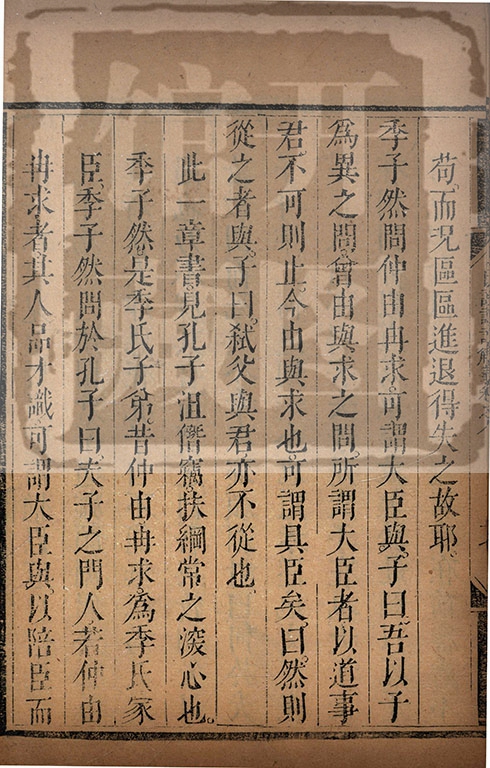 苟。而況區區進退得失之故耶。
季子然問仲由冉求可謂大臣與。子曰。吾以子
爲異之問。曾由與求之問。所謂大臣者以道事
君。不可則止。今由與求也。可謂具臣矣。曰。然則
從之者與。子曰。弑父與君亦不從也。
此一章書。見孔子沮僭竊扶綱常之深心也。
季子然。是季氏子弟。昔仲由冉求。爲季氏家
臣。季子然問於孔子曰。夫子之門人。若仲由
冉求者。其人品才識可謂大臣與。以陪臣而